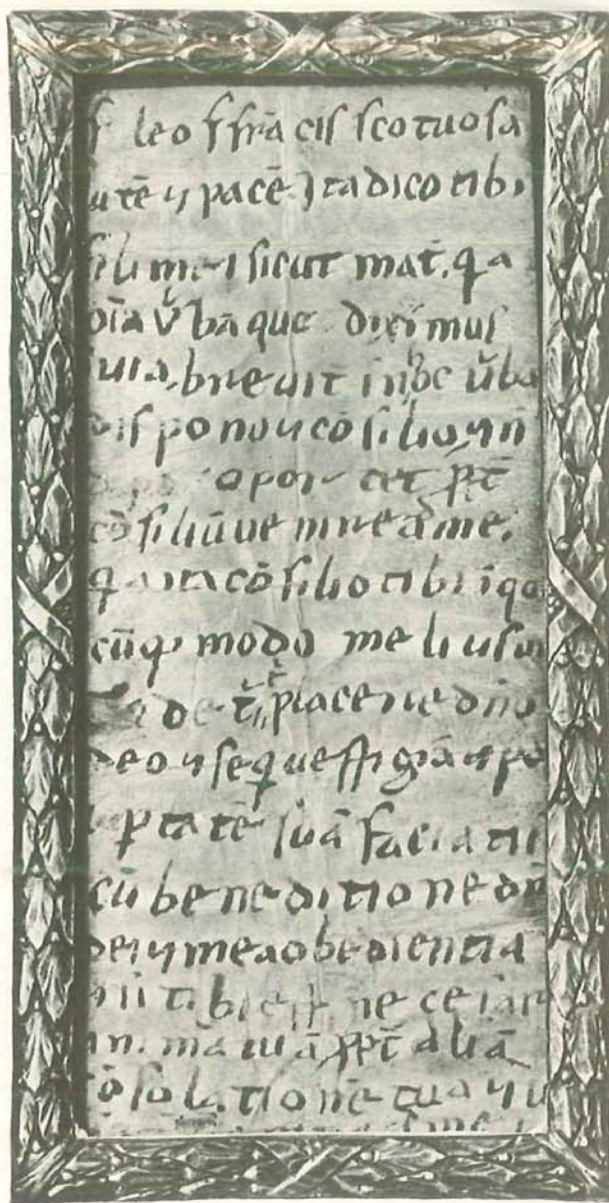 f leo f frācis sco tuo sa
utē ⁊ pacē Ita dico tibi
fili mei sicut mat̄. q̇a
oīa v̆ba que diximus
uia, breuit̄ ī hoc v̆ba
dispono ⁊ cōsilio ⁊ nī
oportet ꝓpt̄
cōsiliū venire ad me.
q̇a ita cōsilio tibi ī qo
cūq; modo melius ui
de t̄ t̆ placere dn̄o
deo ⁊ seq̇ ueſſigia ⁊ po
ptatē suā faciatis
cū beneditione dn̄
dei ⁊ mea obedientia
tibi eſſ necesar
an. mā tuā ꝓpt̄ aliā
cōsolationē tua ⁊ u